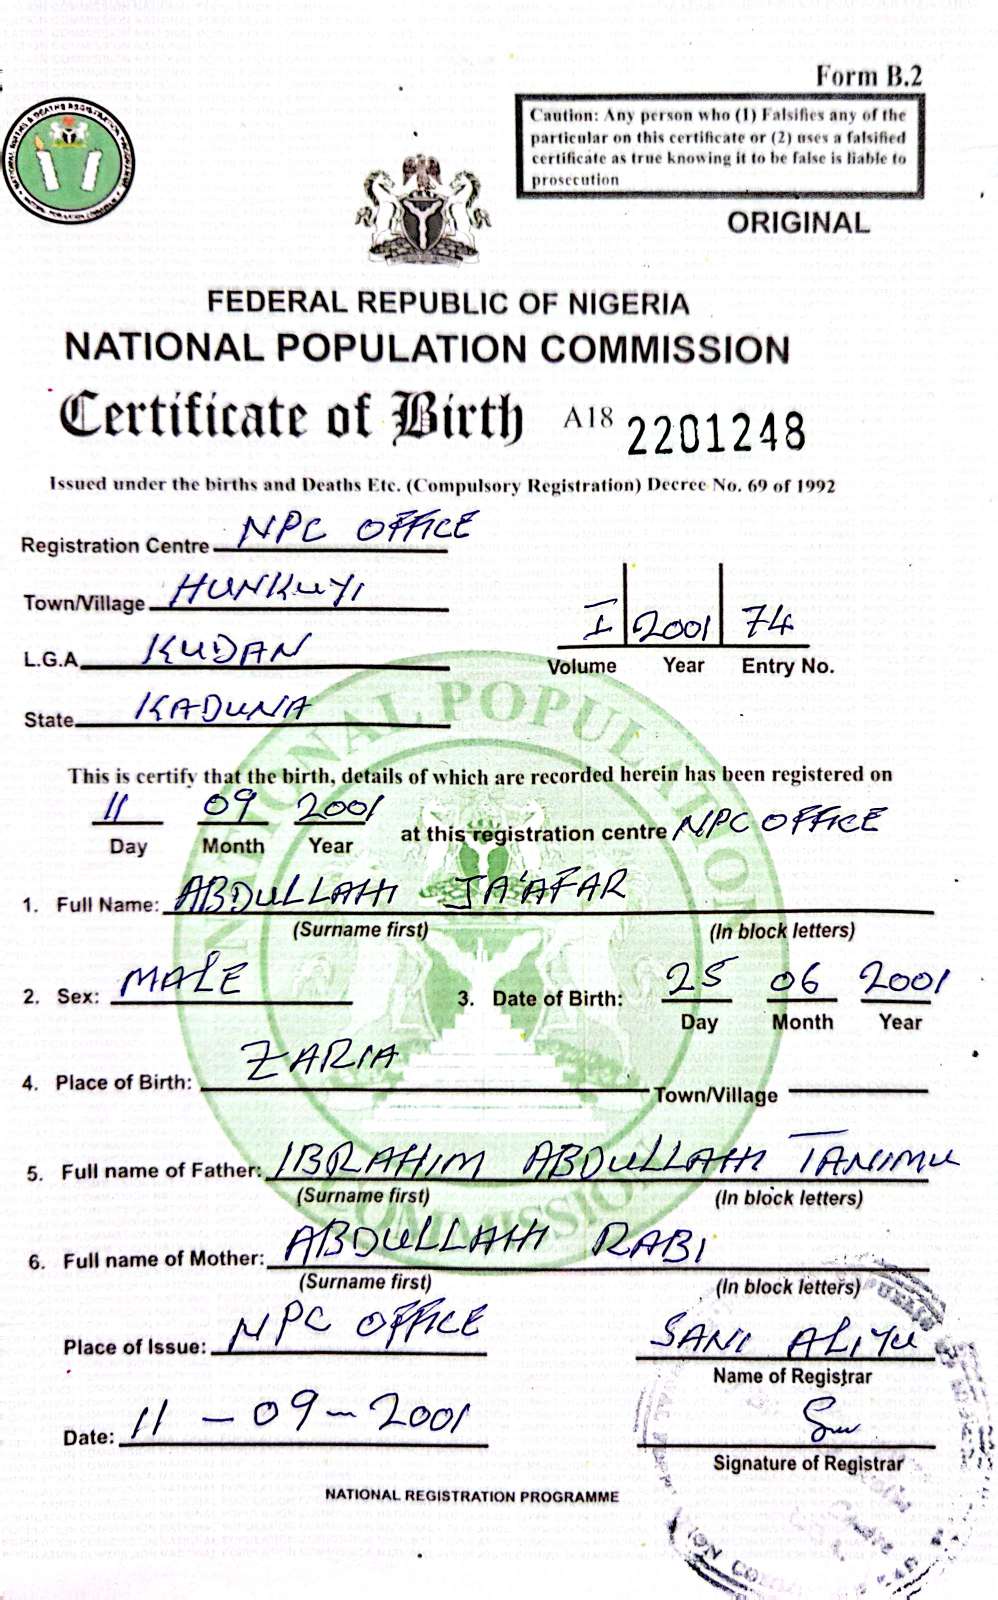 Form B.2
Caution: Any person who (1) Falsifies any of the
particular on this certificate or (2) uses a falsified
certificate as true knowing it to be false is liable to
prosecution
ORIGINAL
FEDERAL REPUBLIC OF NIGERIA
NATIONAL POPULATION COMMISSION
Certificate of Birth A18 2201248
Issued under the births and Deaths Etc. (Compulsory Registration) Decree No. 69 of 1992
Registration Centre NPC OFFICE
Town/Village HUNKUYI
L.G.A KUDAN
State KADUNA
I 2001 74
Volume Year Entry No.
NATIONAL POPULATION COMMISSION
This is certify that the birth, details of which are recorded herein has been registered on
11 09 2001 at this registration centre NPC OFFICE
Day Month Year
1. Full Name: ABDULLAHI JA'AFAR
(Surname first) (In block letters)
2. Sex: MALE 3. Date of Birth: 25 06 2001
Day Month Year
4. Place of Birth: ZARIA Town/Village
5. Full name of Father: IBRAHIM ABDULLAHI TANIMU
(Surname first) (In block letters)
6. Full name of Mother: ABDULLAHI RABI
(Surname first) (In block letters)
Place of Issue: NPC OFFICE SANI ALIYU
Name of Registrar
Date: 11-09-2001
Signature of Registrar
NATIONAL REGISTRATION PROGRAMME